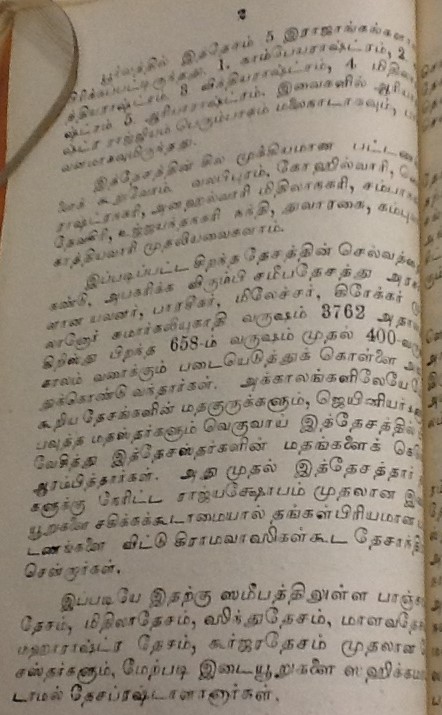 2
பூர்வத்தில் இத்தேசம் 5 இராஜாங்கங்களா
பிரிக்கப்பட்டிருந்தது. 1. காம்பேயராஷ்ட்ரம், 2
த்தியராஷ்ட்ரம் 3 விந்தியராஷ்ட்ரம், 4. மிதிலா
ஷ்ட்ரம் 5. ஆரியராஷ்ட்ரம். இவைகளில் ஆரிய
ஷ்ட்ர ராஜ்ஜியம் பெரும்பாகம் மலைகாடாகவும்,
வனமாகவுமிருந்தது.
இத்தேசத்தின் சில முக்கியமான பட்டண
ளைக் கூறுவோம். வலபிபுரம், கோஹில்வாரி,
ராஷ்ட்ரநகரி, அனஹல்வாரி மிதிலாநகரி, சம்பாந
தேவகிரி, உஜ்ஜயந்தநகரி நந்தி, துவாரகை, கம்பு
காத்தியவாரி முதலியவைகளாம்.
இப்படிப்பட்ட சிறந்த தேசத்தின் செல்வத்தை
கண்டு, அபகரிக்க விரும்பி சமீபதேசத்து அரச
ளான யவனர், பாரசிகர், மிலேச்சர், கிரேக்கர்
லானோர் சுமார்கலியுகாதி வருஷம் 3762 அதாவ
கிறிஸ்து பிறந்த 658-ம் வருஷம் முதல் 400-வரு
காலம் வரைக்கும் படையெடுத்துக் கொள்ளை அ
துக்கொண்டு வந்தார்கள். அக்காலங்களிலேயே
கூறிய தேசங்களின் மதகுருக்களும், ஜெயினியர்க
பவுத்த மதஸ்தர்களும் வெகுவாய் இத்தேசத்தில்
வேசித்து இத்தேசஸ்தர்களின் மதங்களைக் கெ
ஆரம்பித்தார்கள். அது முதல் இத்தேசத்தார்
களுக்கு நேரிட்ட ராஜ்யக்ஷோபம் முதலான இ
யூறுகளை சகிக்கக்கூடாமையால் தங்கள்பிரியமான
டணங்களை விட்டு கிராமவாஸிகள்கூட தேசாந்தி
சென்றார்கள்.
இப்படியே இதற்கு ஸமீபத்திலுள்ள பாஞ்சா
தேசம், மிதிலாதேசம், ஸிந்துதேசம், மாளவதே
மஹாராஷ்ட்ர தேசம், கூர்ஜரதேசம் முதலான
சஸ்தர்களும், மேற்படி இடையூறுகளை ஸஹிக்கமா
டாமல் தேசப்ரஷ்டாளானார்கள்.